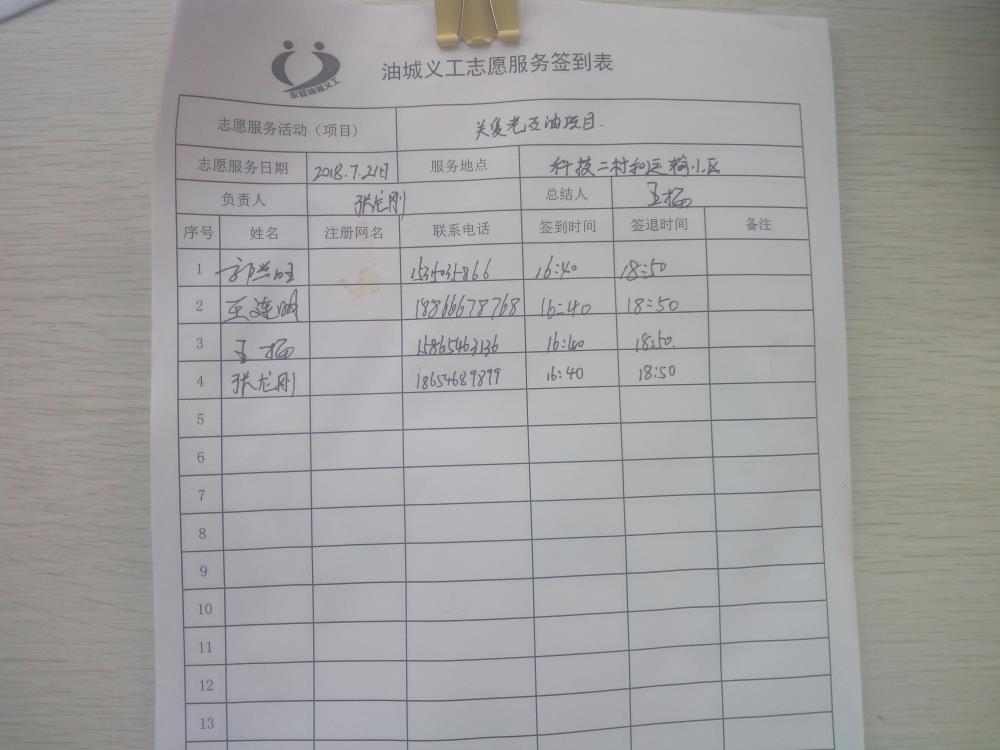 东营油城义工
油城义工志愿服务签到表
志愿服务活动（项目） 关爱老石油项目.
志愿服务日期 2018.7.21日 服务地点 科技二村和运输小区
负责人 张龙刚 总结人 王杨
序号 姓名 注册网名 联系电话 签到时间 签退时间 备注
1 16:40 18:50
2 王连明 18866678768 16:40 18:50
3 王杨 15865463136 16:40 18:50.
4 张龙刚 18654689899 16:40 18:50
5
6
7
8
9
10
11
12
13